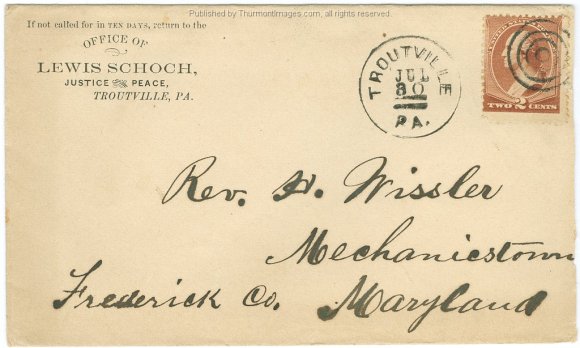 Published by ThurmontImages.com, all rights reserved.
If not called for in TEN DAYS, return to the
OFFICE OF
LEWIS SCHOCH,
JUSTICE OF THE PEACE,
TROUTVILLE, PA.
TROUTVILLE
JUL
30
PA.
TWO 2 CENTS
Rev. H. Wissler
Mechanicstown
Frederick Co. Maryland